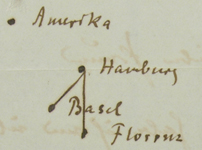 Amerika
Hamburg
Basel
Florenz